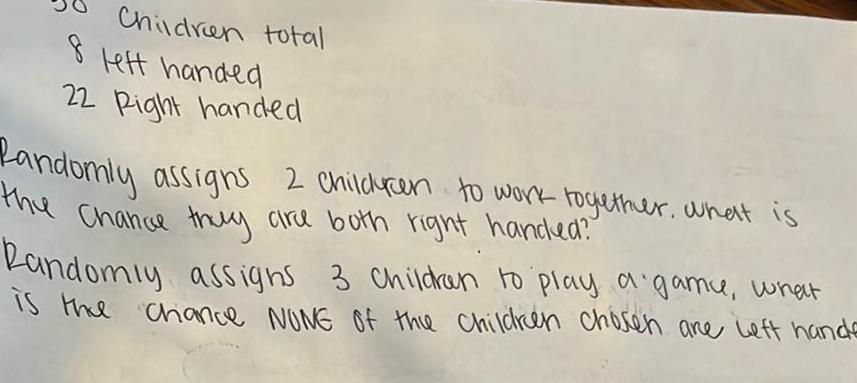 30 Children total
8 left handed
22 Right handed
Randomly assigns 2 children to work together. What is
the chance they are both right handed?
Randomly assigns 3 children to play a game, what
is the chance NONE of the children chosen are left hande